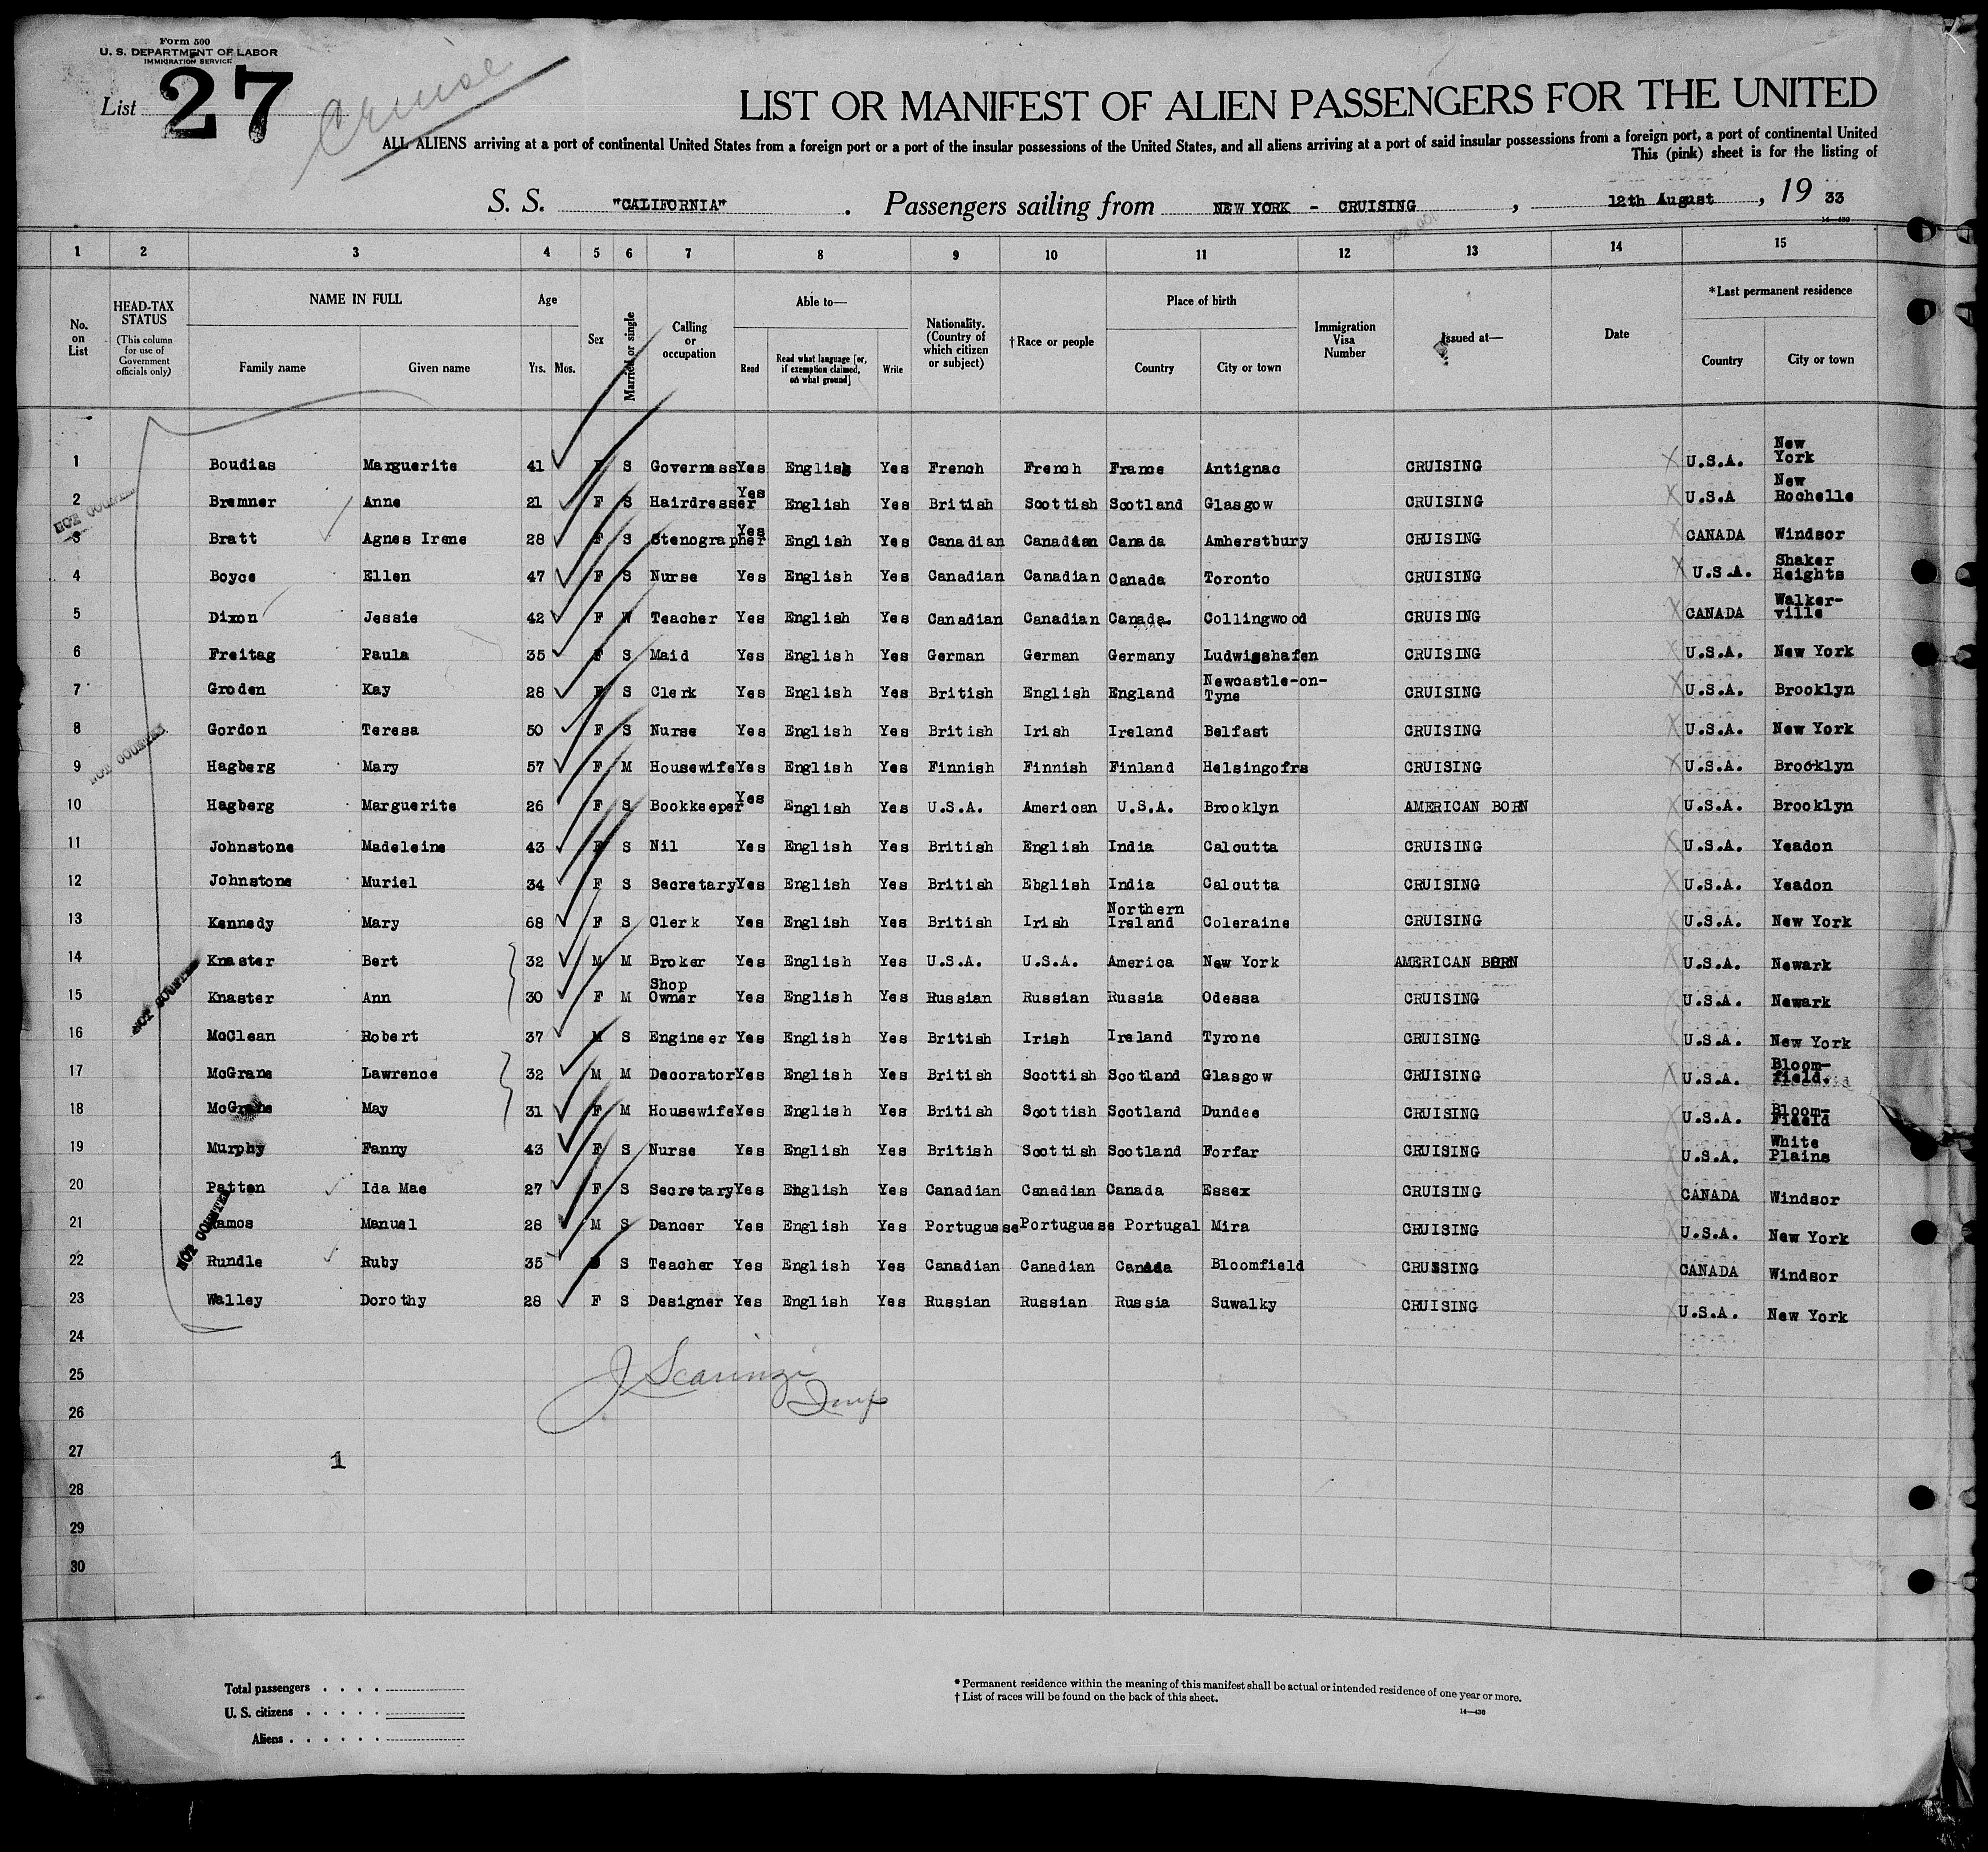 Form 500
U. S. DEPARTMENT OF LABOR
IMMIGRATION SERVICE
List 27
Cruise
LIST OR MANIFEST OF ALIEN PASSENGERS FOR THE UNITED
ALL ALIENS arriving at a port of continental United States from a foreign port or a port of the insular possessions of the United States, and all aliens arriving at a port of said insular possessions from a foreign port, a port of continental United
This (pink) sheet is for the listing of
S. S. "CALIFORNIA" . Passengers sailing from NEW YORK - CRUISING , 12th August , 19 33
14—430
1 2 3 4 5 6 7 8 9 10 11 12 13 14 15
No. on List
HEAD-TAX STATUS
(This column for use of Government officials only)
NAME IN FULL
Family name Given name
Age
Yrs. Mos.
Sex
Married or single
Calling or occupation
Able to—
Read
Read what language [or, if exemption claimed, on what ground]
Write
Nationality. (Country of which citizen or subject)
† Race or people
Place of birth
Country City or town
Immigration Visa Number
Issued at—
Date
*Last permanent residence
Country City or town
1 Boudias Marguerite 41 F S Governess Yes English Yes French French France Antignac CRUISING U.S.A. New York
2 Bremner Anne 21 F S Hairdresser Yes English Yes British Scottish Scotland Glasgow CRUISING U.S.A New Rochelle
NOT COUNTED
3 Bratt Agnes Irene 28 F S Stenographer Yes English Yes Canadian Canadian Canada Amherstbury CRUISING CANADA Windsor
4 Boyce Ellen 47 F S Nurse Yes English Yes Canadian Canadian Canada Toronto CRUISING U.S.A. Shaker Heights
5 Dixon Jessie 42 F W Teacher Yes English Yes Canadian Canadian Canada. Collingwood CRUISING CANADA Walker-ville
6 Freitag Paula 35 F S Maid Yes English Yes German German Germany Ludwigshafen CRUISING U.S.A. New York
7 Groden Kay 28 F S Clerk Yes English Yes British English England Newcastle-on-Tyne CRUISING U.S.A. Brooklyn
8 Gordon Teresa 50 F S Nurse Yes English Yes British Irish Ireland Belfast CRUISING U.S.A. New York
NOT COUNTED
9 Hagberg Mary 57 F M Housewife Yes English Yes Finnish Finnish Finland Helsingofrs CRUISING U.S.A. Brooklyn
10 Hagberg Marguerite 26 F S Bookkeeper Yes English Yes U.S.A. American U.S.A. Brooklyn AMERICAN BORN U.S.A. Brooklyn
11 Johnstone Madeleine 43 F S Nil Yes English Yes British English India Calcutta CRUISING U.S.A. Yeadon
12 Johnstone Muriel 34 F S Secretary Yes English Yes British Ebglish India Calcutta CRUISING U.S.A. Yeadon
13 Kennedy Mary 68 F S Clerk Yes English Yes British Irish Northern Ireland Coleraine CRUISING U.S.A. New York
14 Knaster Bert 32 M M Broker Yes English Yes U.S.A. U.S.A. America New York AMERICAN BORN U.S.A. Newark
NOT COUNTED
15 Knaster Ann 30 F M Shop Owner Yes English Yes Russian Russian Russia Odessa CRUISING U.S.A. Newark
16 McClean Robert 37 M S Engineer Yes English Yes British Irish Ireland Tyrone CRUISING U.S.A. New York
17 McGrane Lawrence 32 M M Decorator Yes English Yes British Scottish Scotland Glasgow CRUISING U.S.A. Bloom-field.
18 McGrane May 31 F M Housewife Yes English Yes British Scottish Scotland Dundee CRUISING U.S.A. Bloom-Field
19 Murphy Fanny 43 F S Nurse Yes English Yes British Scottish Scotland Forfar CRUISING U.S.A. White Plains
20 Patten Ida Mae 27 F S Secretary Yes English Yes Canadian Canadian Canada Essex CRUISING CANADA Windsor
NOT COUNTED
21 Ramos Manuel 28 M S Dancer Yes English Yes Portuguese Portuguese Portugal Mira CRUISING U.S.A. New York
22 Rundle Ruby 35 S Teacher Yes English Yes Canadian Canadian Canada Bloomfield CRUSSING CANADA Windsor
23 Walley Dorothy 28 F S Designer Yes English Yes Russian Russian Russia Suwalky CRUISING U.S.A. New York
24
25
J Scarinzi
Insp
26
27 1
28
29
30
Total passengers . . . .
U. S. citizens . . . . .
Aliens . . . . . .
* Permanent residence within the meaning of this manifest shall be actual or intended residence of one year or more.
† List of races will be found on the back of this sheet.
14—430